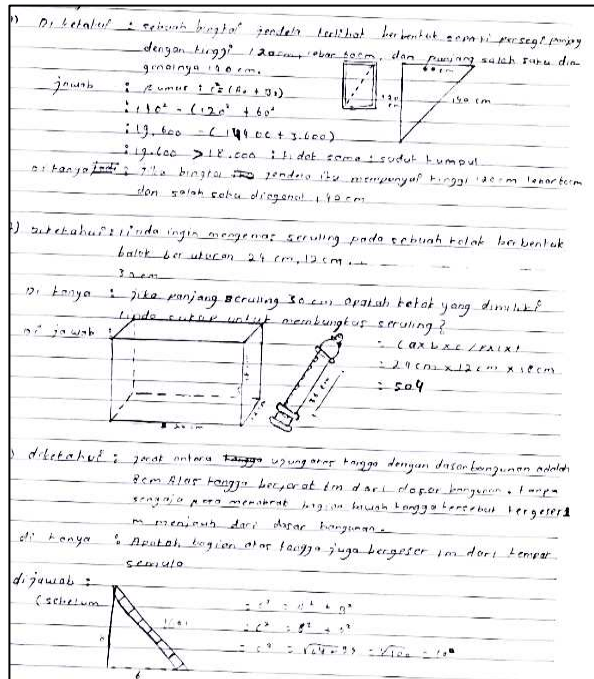 Diketahui : sebuah bingkai jendela terlihat berbentuk seperti persegi panjang
dengan tinggi 120cm, lebar 60cm, dan panjang salah satu dia
gonalnya 140 cm.
60 cm
140 cm
jawab : Rumus :
: 140² - (120² + 60²
: 19.600 - (14400 + 3.600)
: 19.600 > 18.000 : tidak sama : sudut tumpul
jika bingkai jendela itu mempunyai tinggi 120cm lebar 60cm
dan salah satu diagonal 140 cm
linda ingin mengemas seruling pada sebuah kotak berbentuk
balok berukuran 24 cm, 12 cm,
Di tanya : jika panjang seruling 30 cm apakah kotak yang dimiliki
linda cukup untuk membungkus seruling?
di jawab :
= 24 cm x 12 cm x 18cm
= 504
diketahui : jarak antara tangga ujung atas tangga dengan dasar bangunan adalah
8cm Alas tangga berjarak 6m dari dasar bangunan. tanpa
sengaja menabrak bagian bawah tangga tersebut tergeser 1
m menjauh dari dasar bangunan.
di tanya : Apakah bagian atas tangga juga bergeser 1m dari tempat
semula
dijawab :
(sebelum
6